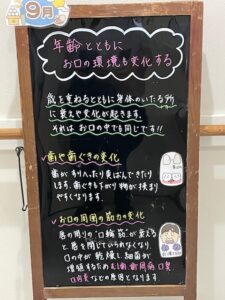 9月
年齢とともに
お口の環境も変化する
歳を重ねるとともに身体のいたる所
に衰えや変化が起きます。
それは、お口の中でも同じです!!
歯や歯ぐきの変化
歯がすりへったり黄ばんできたり
します。歯ぐきも下がり物が挟まり
やすくなります。
お口の周囲の筋力の変化
唇の周りの"口輪筋"が衰える
と唇を閉じていられなくなり、
口の中が乾燥し細菌が
増殖するため虫歯・歯周病・口臭
口内炎などの原因となります。